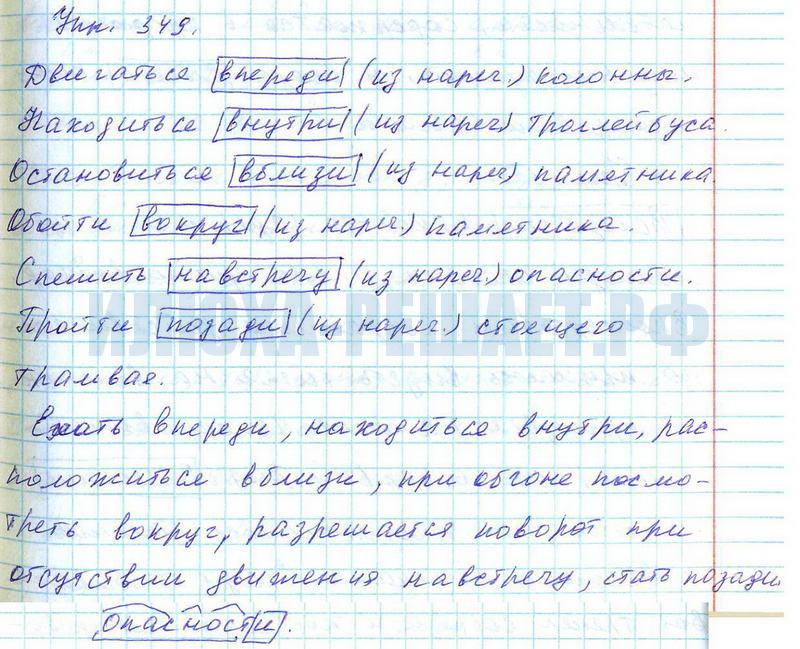 Упр. 349.
Двигаться впереди (из нареч.) колонны.
Находиться внутри (из нареч) троллейбуса.
Остановиться вблизи (из нареч) памятника.
Обойти вокруг (из нареч.) памятника.
Спешить навстречу (из нареч.) опасности.
ИЛЮХА-РЕШАЕТ.РФ
Пройти позади (из нареч.) стоящего
трамвая.
Ехать впереди, находиться внутри, рас-
положиться вблизи, при обгоне посмо-
треть вокруг, разрешается поворот при
отсутствии движения навстречу, стать позади
опасности.